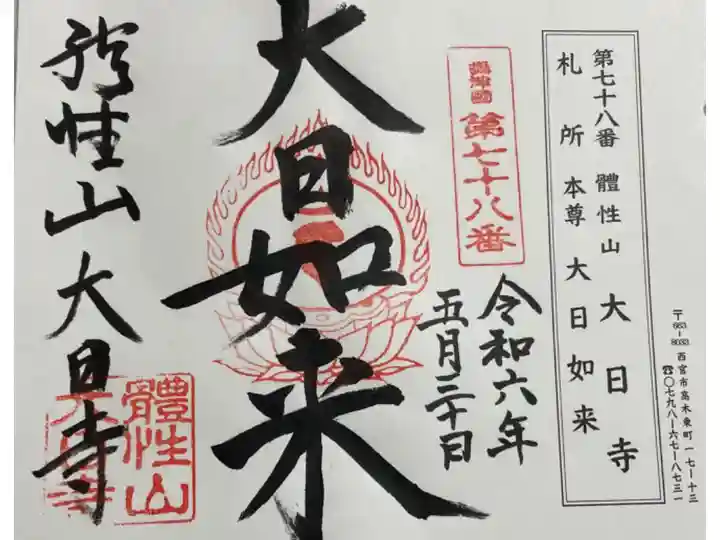 第七十八番 體性山 大日寺
札所本尊 大日如来
〒663-8033 西宮市高木東町一七ー十三
☎〇七九八ー六七ー八七三一
攝津國 第七十八番
令和六年
五月三十日
大日如来
體性山 大日寺
體性山
大日寺